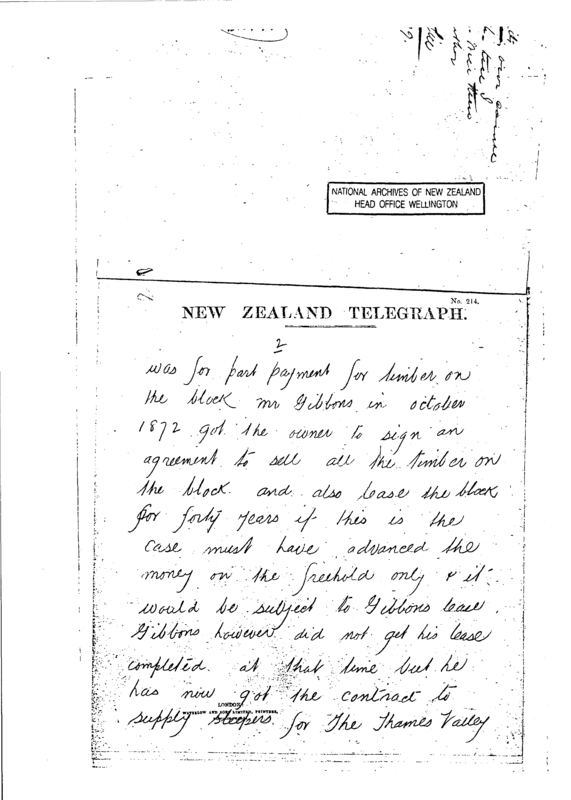 NATIONAL ARCHIVES OF NEW ZEALAND
HEAD OFFICE WELLINGTON
No. 214.
NEW ZEALAND TELEGRAPH.
2
was for part payment for timber on
the block mr Gibbons in october
1872 got the owner to sign an
agreement to sell all the timber on
the block. and also lease the block
for forty years if this is the
case must have advanced the
money on the freehold only & it
would be subject to Gibbons lease.
Gibbons however did not get his lease
completed. at that time but he
has now got the contract to
LONDON
WATERLOW AND SONS LIMITED, PRINTERS,
supply sleepers for The Thames Valley